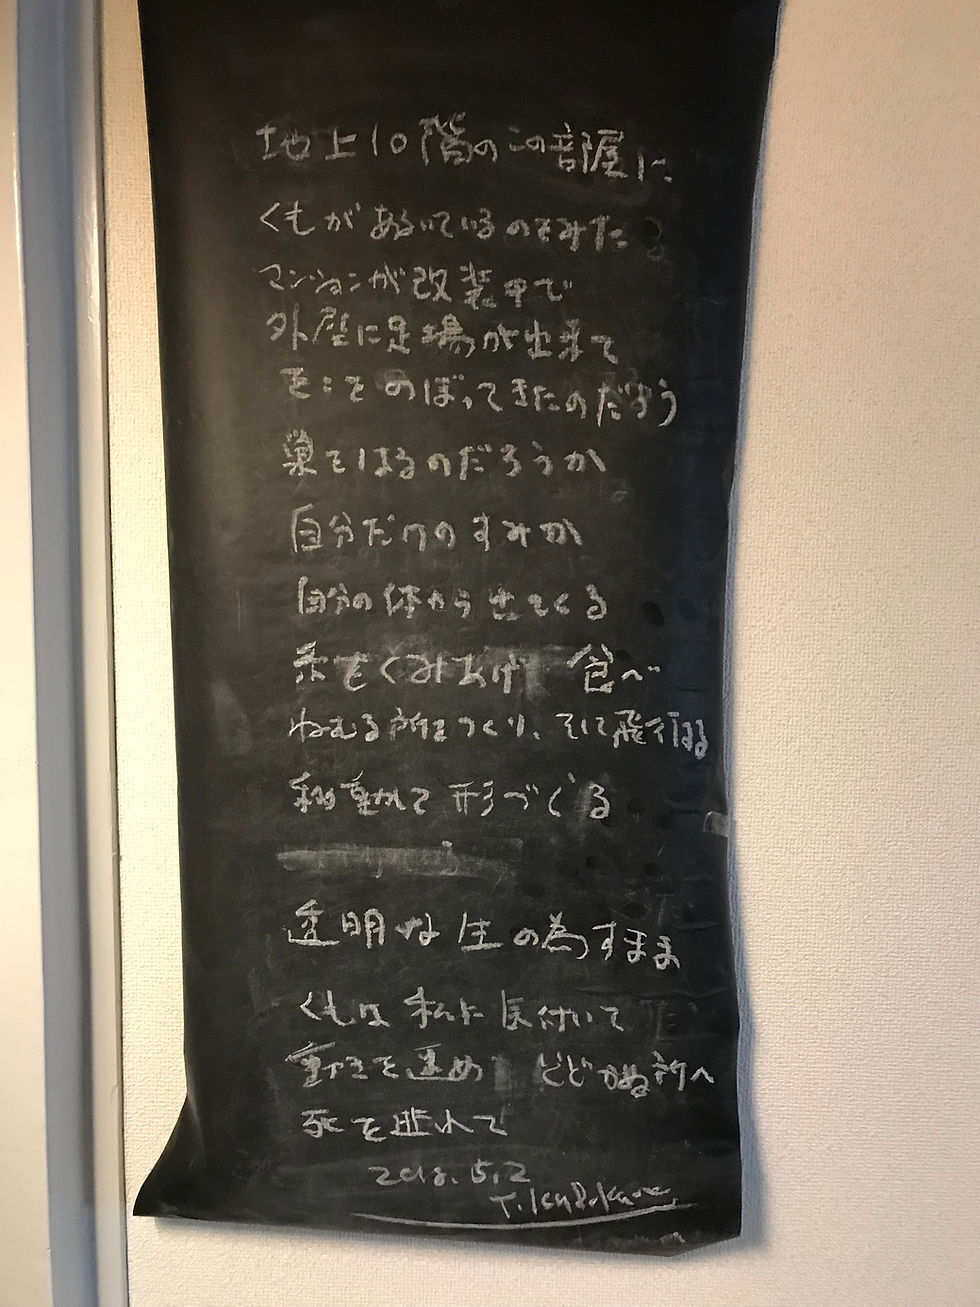 地上10階のこの部屋に
くもがあるいているのをみた
マンションが改装中で
外壁に足場が出来て
そこをのぼってきたのだろう
巣をはるのだろうか
自分だけのすみか
自分の体から出てくる
糸をくみあげ 食べ
ねむる所をつくり、そして飛行する
移動して形づくる
透明な生の為すまま
くもは私に気付いて
動きを速め とどかぬ所へ
死を逃れて
2018.5.2